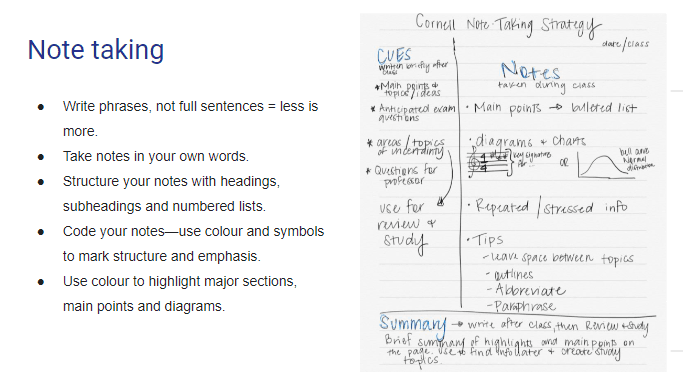 Note taking
● Write phrases, not full sentences = less is
more.
● Take notes in your own words.
● Structure your notes with headings,
subheadings and numbered lists.
● Code your notes—use colour and symbols
to mark structure and emphasis.
● Use colour to highlight major sections,
main points and diagrams.
Cornell Note-Taking Strategy
date/class
CUES
written briefly after
class
* Main points &
topics/ideas
* Anticipated exam
questions
* areas/topics
of uncertainty
* Questions for
professor
use for
review &
study
Notes
taken during class
• Main points → bulleted list
• diagrams & charts
key signature
OR
bell curve
Normal
distribution
• Repeated/stressed info
• Tips
- leave space between topics
- outlines
- Abbreviate
- Paraphrase
Summary → write after class, then Review & Study
Brief summary of highlights and main points on
the page. Use to find info later & create study
topics.